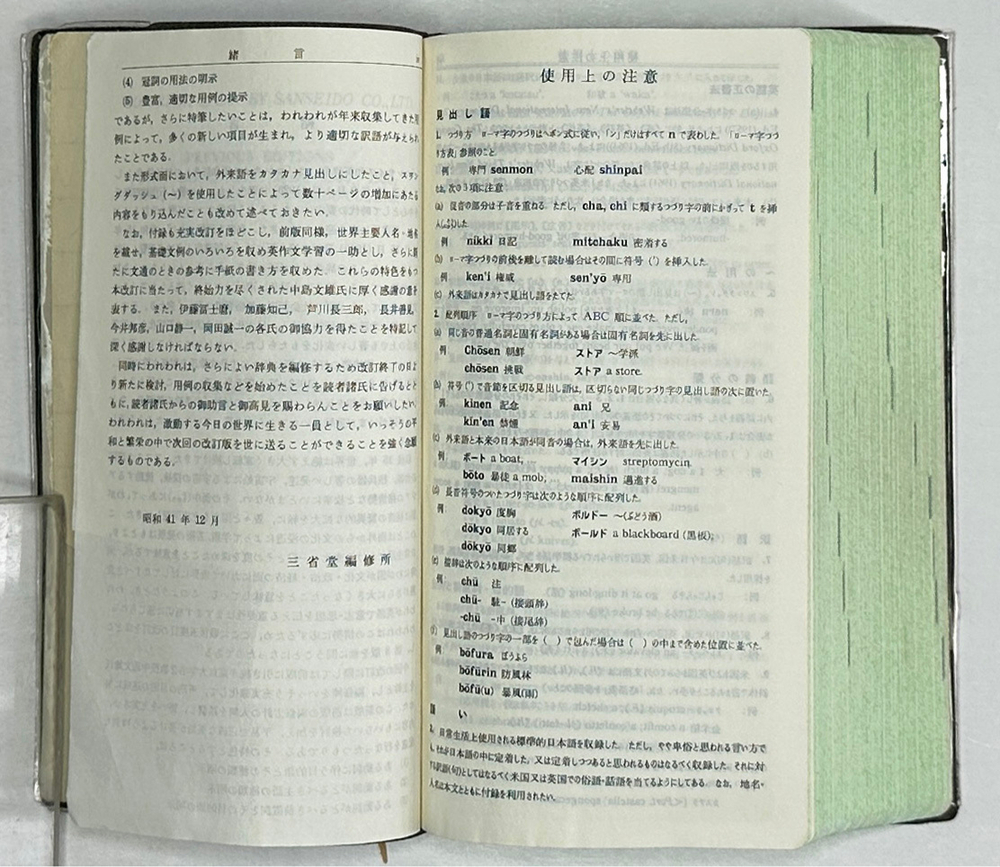 緒言
(4) 冠詞の用法の明示
(5) 豊富，適切な用例の提示
であるが，さらに特筆したいことは，われわれが年来収集してきた
例によって，多くの新しい項目が生まれ，より適切な訳語が与えられ
たことである．
また形式面において，外来語をカタカナ見出しにしたこと，スワン
グダッシュ（〜）を使用したことによって数十ページの増加にあたる
内容をもり込んだことも改めて述べておきたい．
なお，付録も充実改訂をほどこし，前版同様，世界主要人名・地名
を載せ，基礎文例のいろいろを収め英作文学習の一助とし，さらに新
たに文通のときの参考に手紙の書き方を収めた．これらの特色をもつ
本改訂に当たって，終始力を尽くされた中島文雄氏に厚く感謝の意を
表する．また，伊藤冨士麿，加藤知己，芦川長三郎，長井善見，
今井邦彦，山口静一，岡田誠一の各氏の御協力を得たことを特記して
深く感謝しなければならない．
同時にわれわれは，さらによい辞典を編修するため改訂終了の日よ
り新たに検討，用例の収集などを始めたことを読者諸氏に告げるとと
もに，読者諸氏からの御助言と御高見を賜わらんことをお願いしたい．
われわれは，激動する今日の世界に生きる一員として，いっそうの平
和と繁栄の中で次回の改訂版を世に送ることができることを強く念願
するものである．
昭和 41 年 12 月
三省堂編修所
使用上の注意
見出し語
1. つづり方 ローマ字のつづりはヘボン式に従い，「ン」だけはすべて n で表わした．「ローマ字つづ
り方表」参照のこと．
例 専門 senmon 心配 shinpai
なお，次の3項に注意
(a) 促音の部分は子音を重ねる．ただし，cha, chi に類するつづり字の前にかぎって t を挿
入(ふ)した
例 nikki 日記 mitchaku 密着する
(b) ローマ字つづりの前後を離して読む場合はその間に符号（'）を挿入した．
例 ken'i 権威 sen'yō 専用
(c) 外来語はカタカナで見出し語をたてた．
2. 配列順序 ローマ字のつづり方によって ABC 順に並べた．ただし，
(a) 同じ音の普通名詞と固有名詞がある場合は固有名詞を先に出した．
例 Chōsen 朝鮮 ストア 〜学派
chōsen 挑戦 ストア a store.
(b) 符号（'）で音節を区切る見出し語は，区切らない同じつづり字の見出し語の次に置いた．
例 kinen 記念 ani 兄
kin'en 禁煙 an'i 安易
(c) 外来語と本来の日本語が同音の場合は，外来語を先に出した．
例 ボート a boat, ... マイシン streptomycin.
bōto 暴徒 a mob, ... maishin 邁進する
(d) 長音符号のついたつづり字は次のような順序に配列した．
例 dokyō 度胸 ボルドー 〜(ぶどう酒)
dōkyo 同居する ボールド a blackboard (黒板);
dōkyō 同郷
(e) 接辞は次のような順序に配列した．
例 chū 注
chū- 駐-（接頭辞）
-chū -中（接尾辞）
(f) 見出し語のつづり字の一部を（ ）で包んだ場合は（ ）の中まで含めた位置に並べた．
例 bōfura ぼうふら
bōfūrin 防風林
bōfū(u) 暴風(雨)
語い
3. 日常生活上使用される標準的日本語を収録した．ただし，やや卑俗と思われる言い方で
も，それが日本語の中に定着し，又は定着しつつあると思われるものはなるべく収録した．それに対
する訳語(句)としてはなるべく米国又は英国での俗語・話語を当てるようにしてある．なお，地名・
人名は本文とともに付録を利用されたい．